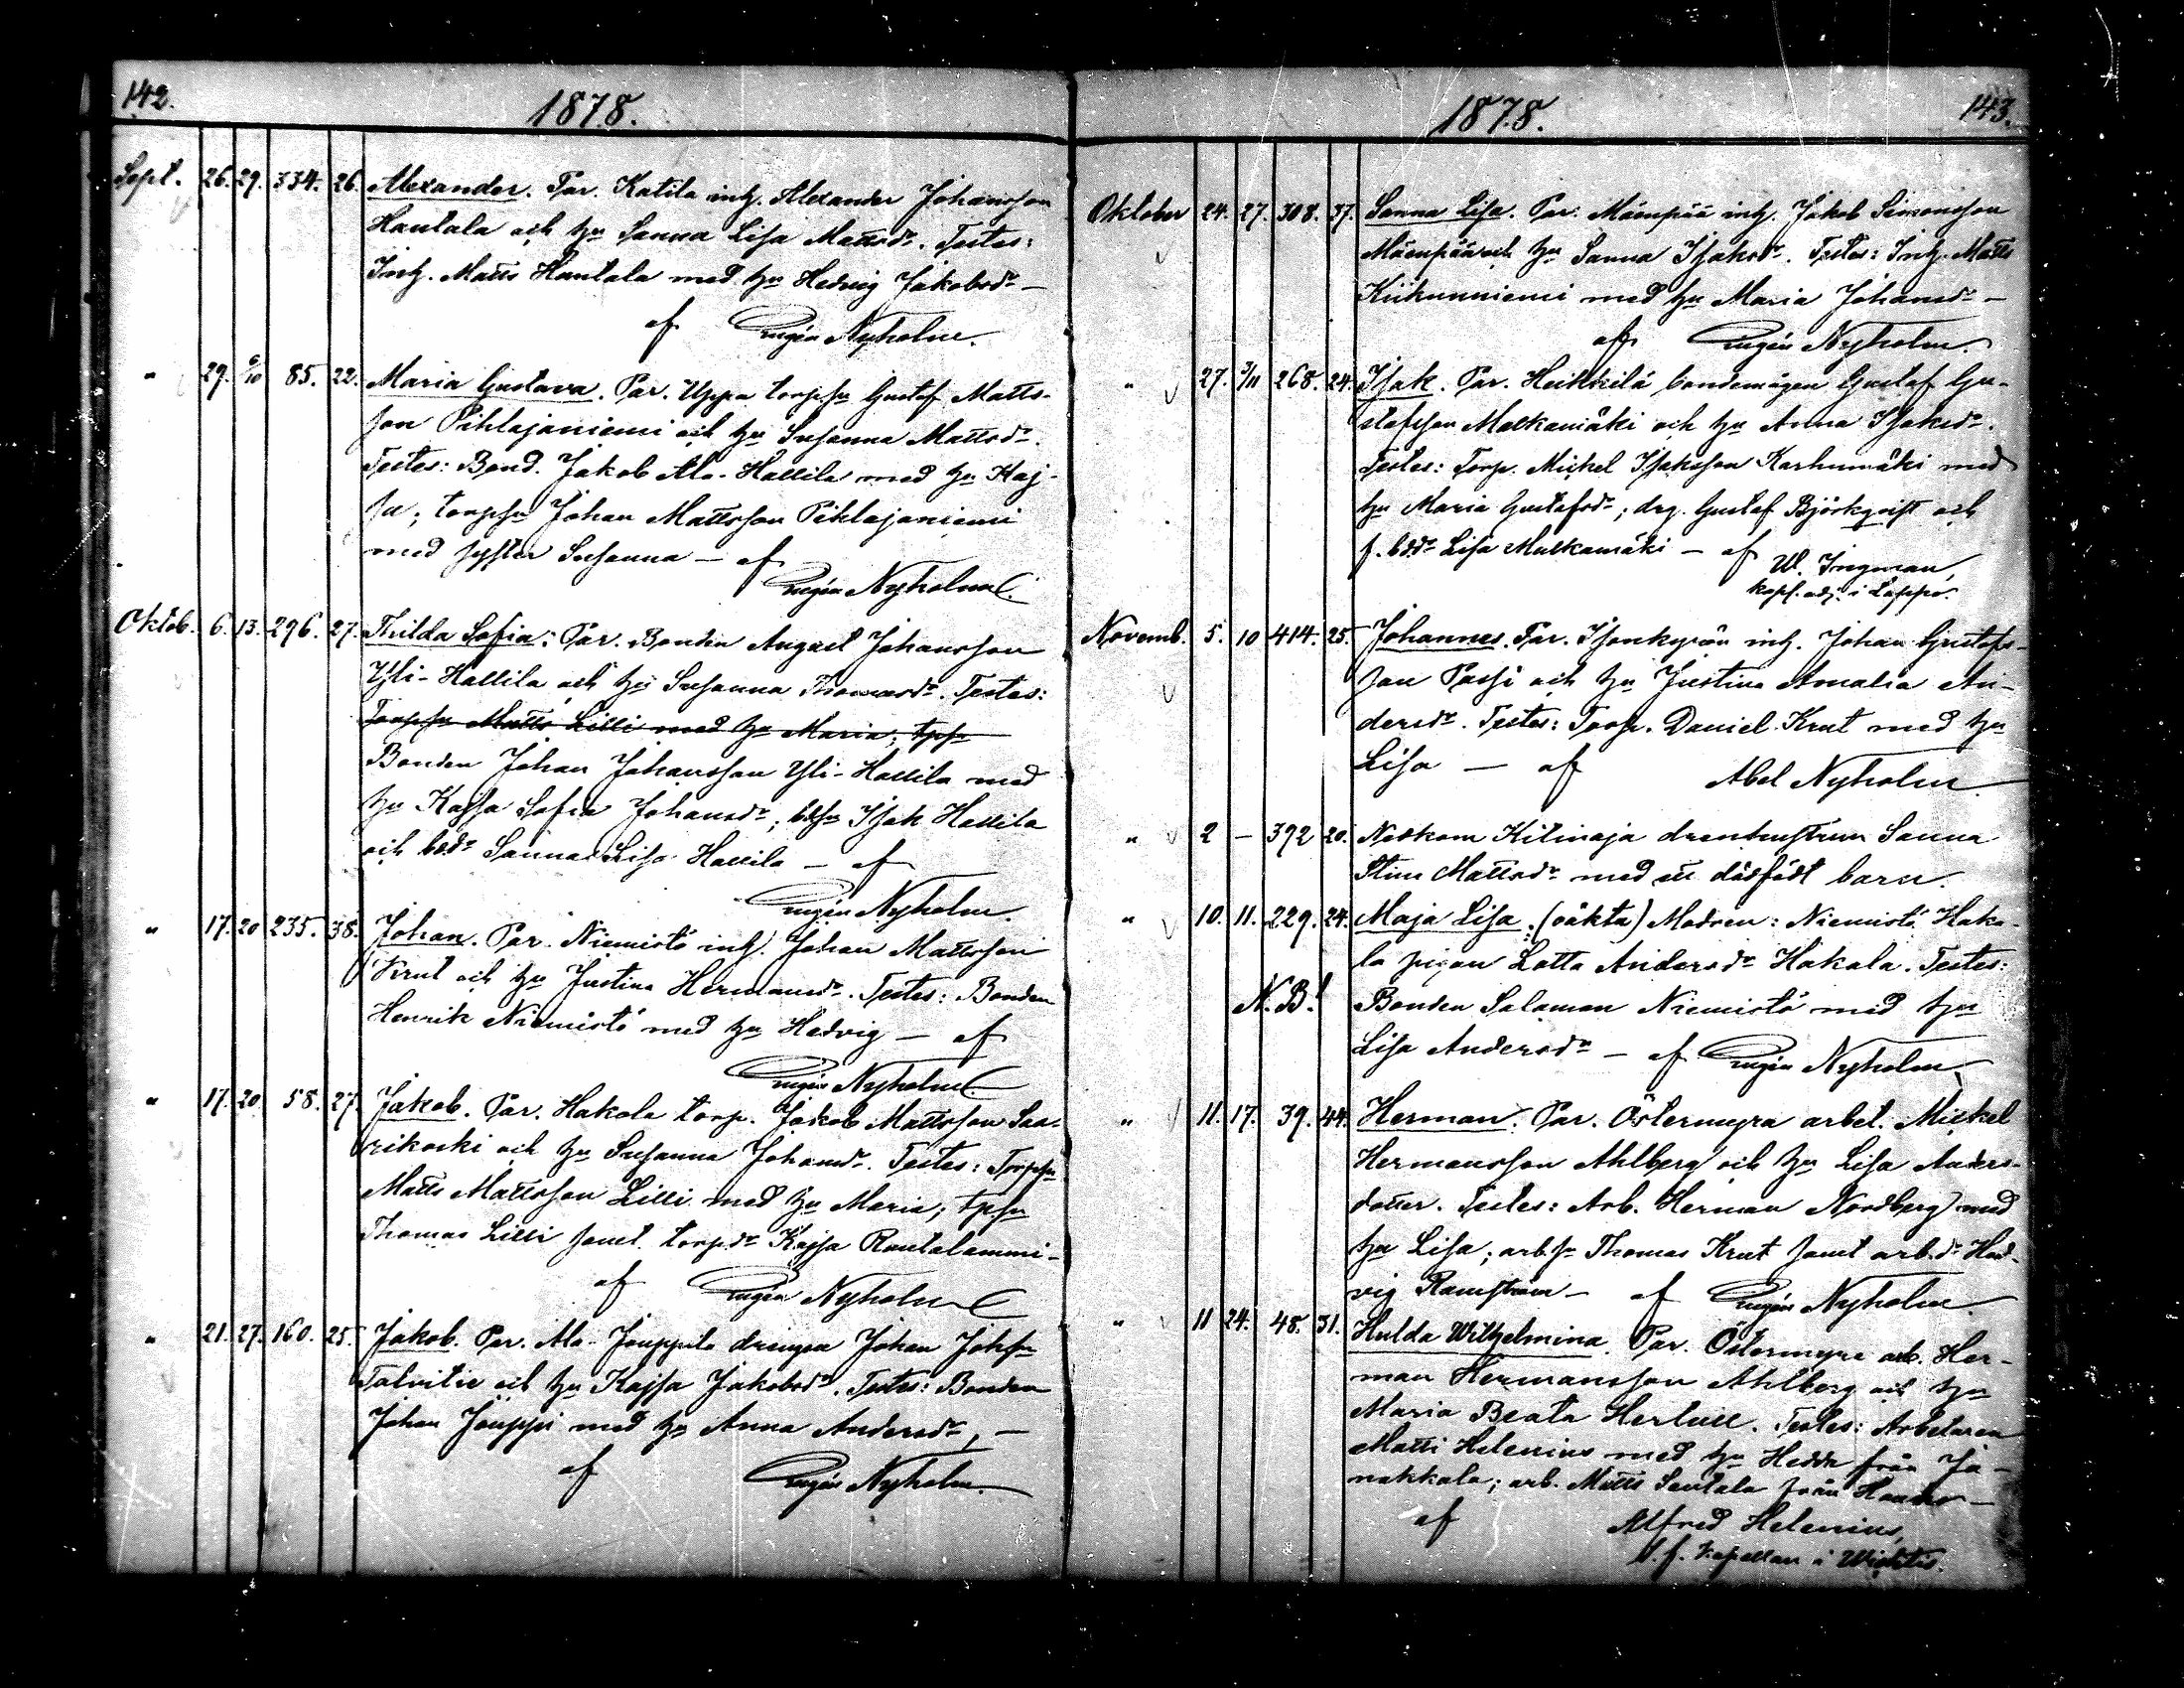 142.
1878.
Sept. 26. 29. 334. 26. Alexander. Par. Katila inh. Alexander Johansson
Hautala och hu Sanna Lisa Mattsdr. Testes:
Inh. Matts Hautala med hu Hedvig Jakobsdr —
af Eugén Nyholm.
" 29. 6/10 85. 22. Maria Gustava. Par. Uppa torpsn Gustaf Matts-
son Pihlajaniemi och hu Susanna Mattsdr.
Testes: Bond. Jakob Ala-Hallila med hu Kaj-
sa; torpsn Johan Mattsson Pihlajaniemi
med syster Susanna — af
Eugén Nyholm.
Oktob. 6. 13. 296. 27. Thilda Sofia: Par. Bonden August Johansson
Yli-Hallila och hu Susanna Thomasdr. Testes:
Torpsn Matts Lilli med hu Maria; tpsn
Bonden Johan Johansson Yli-Hallila med
hu Kajsa Sofia Johansdr; bdsn Isak Hallila
och bddr Sanna Lisa Hallila — af
Eugén Nyholm.
" 17. 20 235. 38. Johan. Par. Niemistö inh. Johan Mattsson
Krut och hu Justina Hermansdr. Testes: Bonden
Henrik Niemistö med hu Hedvig — af
Eugén Nyholm.
" 17. 20 58. 27. Jakob. Par. Hakola torp. Jakob Mattsson Saa-
rikoski och hu Susanna Johansdr. Testes: Torpsn
Matts Mattsson Lilli med hu Maria; tpsn
Thomas Lilli samt torpdr Kajsa Rautalammi —
af Eugén Nyholm
" 21. 27. 160. 25. Jakob. Par. Ala-Jouppila drengen Johan Johsn
Talvitie och hu Kajsa Jakobsdr. Testes: Bonden
Johan Jouppi med hu Anna Andersdr, —
af Eugén Nyholm.
1878.
143.
Oktober 24. 27. 308. 37. Sanna Lisa. Par: Mäenpää inh. Jakob Simonsson
Mäenpää och hu Sanna Isaksdr. Testes: Inh. Matts
Kiikunniemi med hu Maria Johansdr —
af Eugén Nyholm.
" 27. 3/11 268. 24. Isak. Par. Heikkilä bondemågen Gustaf Gu-
stafsson Malkamäki och hu Anna Isaksdr.
Testes: Torp. Mickel Isaksson Karhumäki med
hu Maria Gustafsdr; drg. Gustaf Björkqvist och
f. bddr Lisa Malkamäki — af
W. Ingman,
kapl. adj. i Lappo.
Novemb. 5. 10 414. 25. Johannes. Par. Isonkyrön inh. Johan Gustafs-
son Passi och hu Justina Amalia An-
dersdr. Testes: Torp. Daniel Krut med hu
Lisa — af Abel Nyholm
" 2 — 392 20. Nedkom Kitinoja drenhustrun Sanna
Stina Mattsdr med ett dödfödt barn.
" 10. 11. 229. 24. Maja Lisa: (oäkta) Modren: Niemistö Hako-
la pigan Lotta Andersdr Hakola. Testes:
N.B! Bonden Salomon Niemistö med hu
Lisa Andersdr — af Eugén Nyholm
" 11. 17. 39. 44. Herman. Par. Östermyra arbet. Mickel
Hermansson Ahlberg och hu Lisa Anders-
dotter. Testes: Arb. Herman Nordberg med
hu Lisa; arb.sn Thomas Krut samt arb.dr Hed-
vig Ramström — af Eugén Nyholm.
" 11 24. 48. 31. Hulda Wilhelmina. Par. Östermyra arb. Her-
man Hermansson Ahlberg och hu
Maria Beata Herlull. Testes: Arbetaren
Matti Helenius med hu Hedda från Ja-
nakkala; arb. Matts Sentala från —
af Alfred Helenius,
V.f. Kapellan i Wichtis.